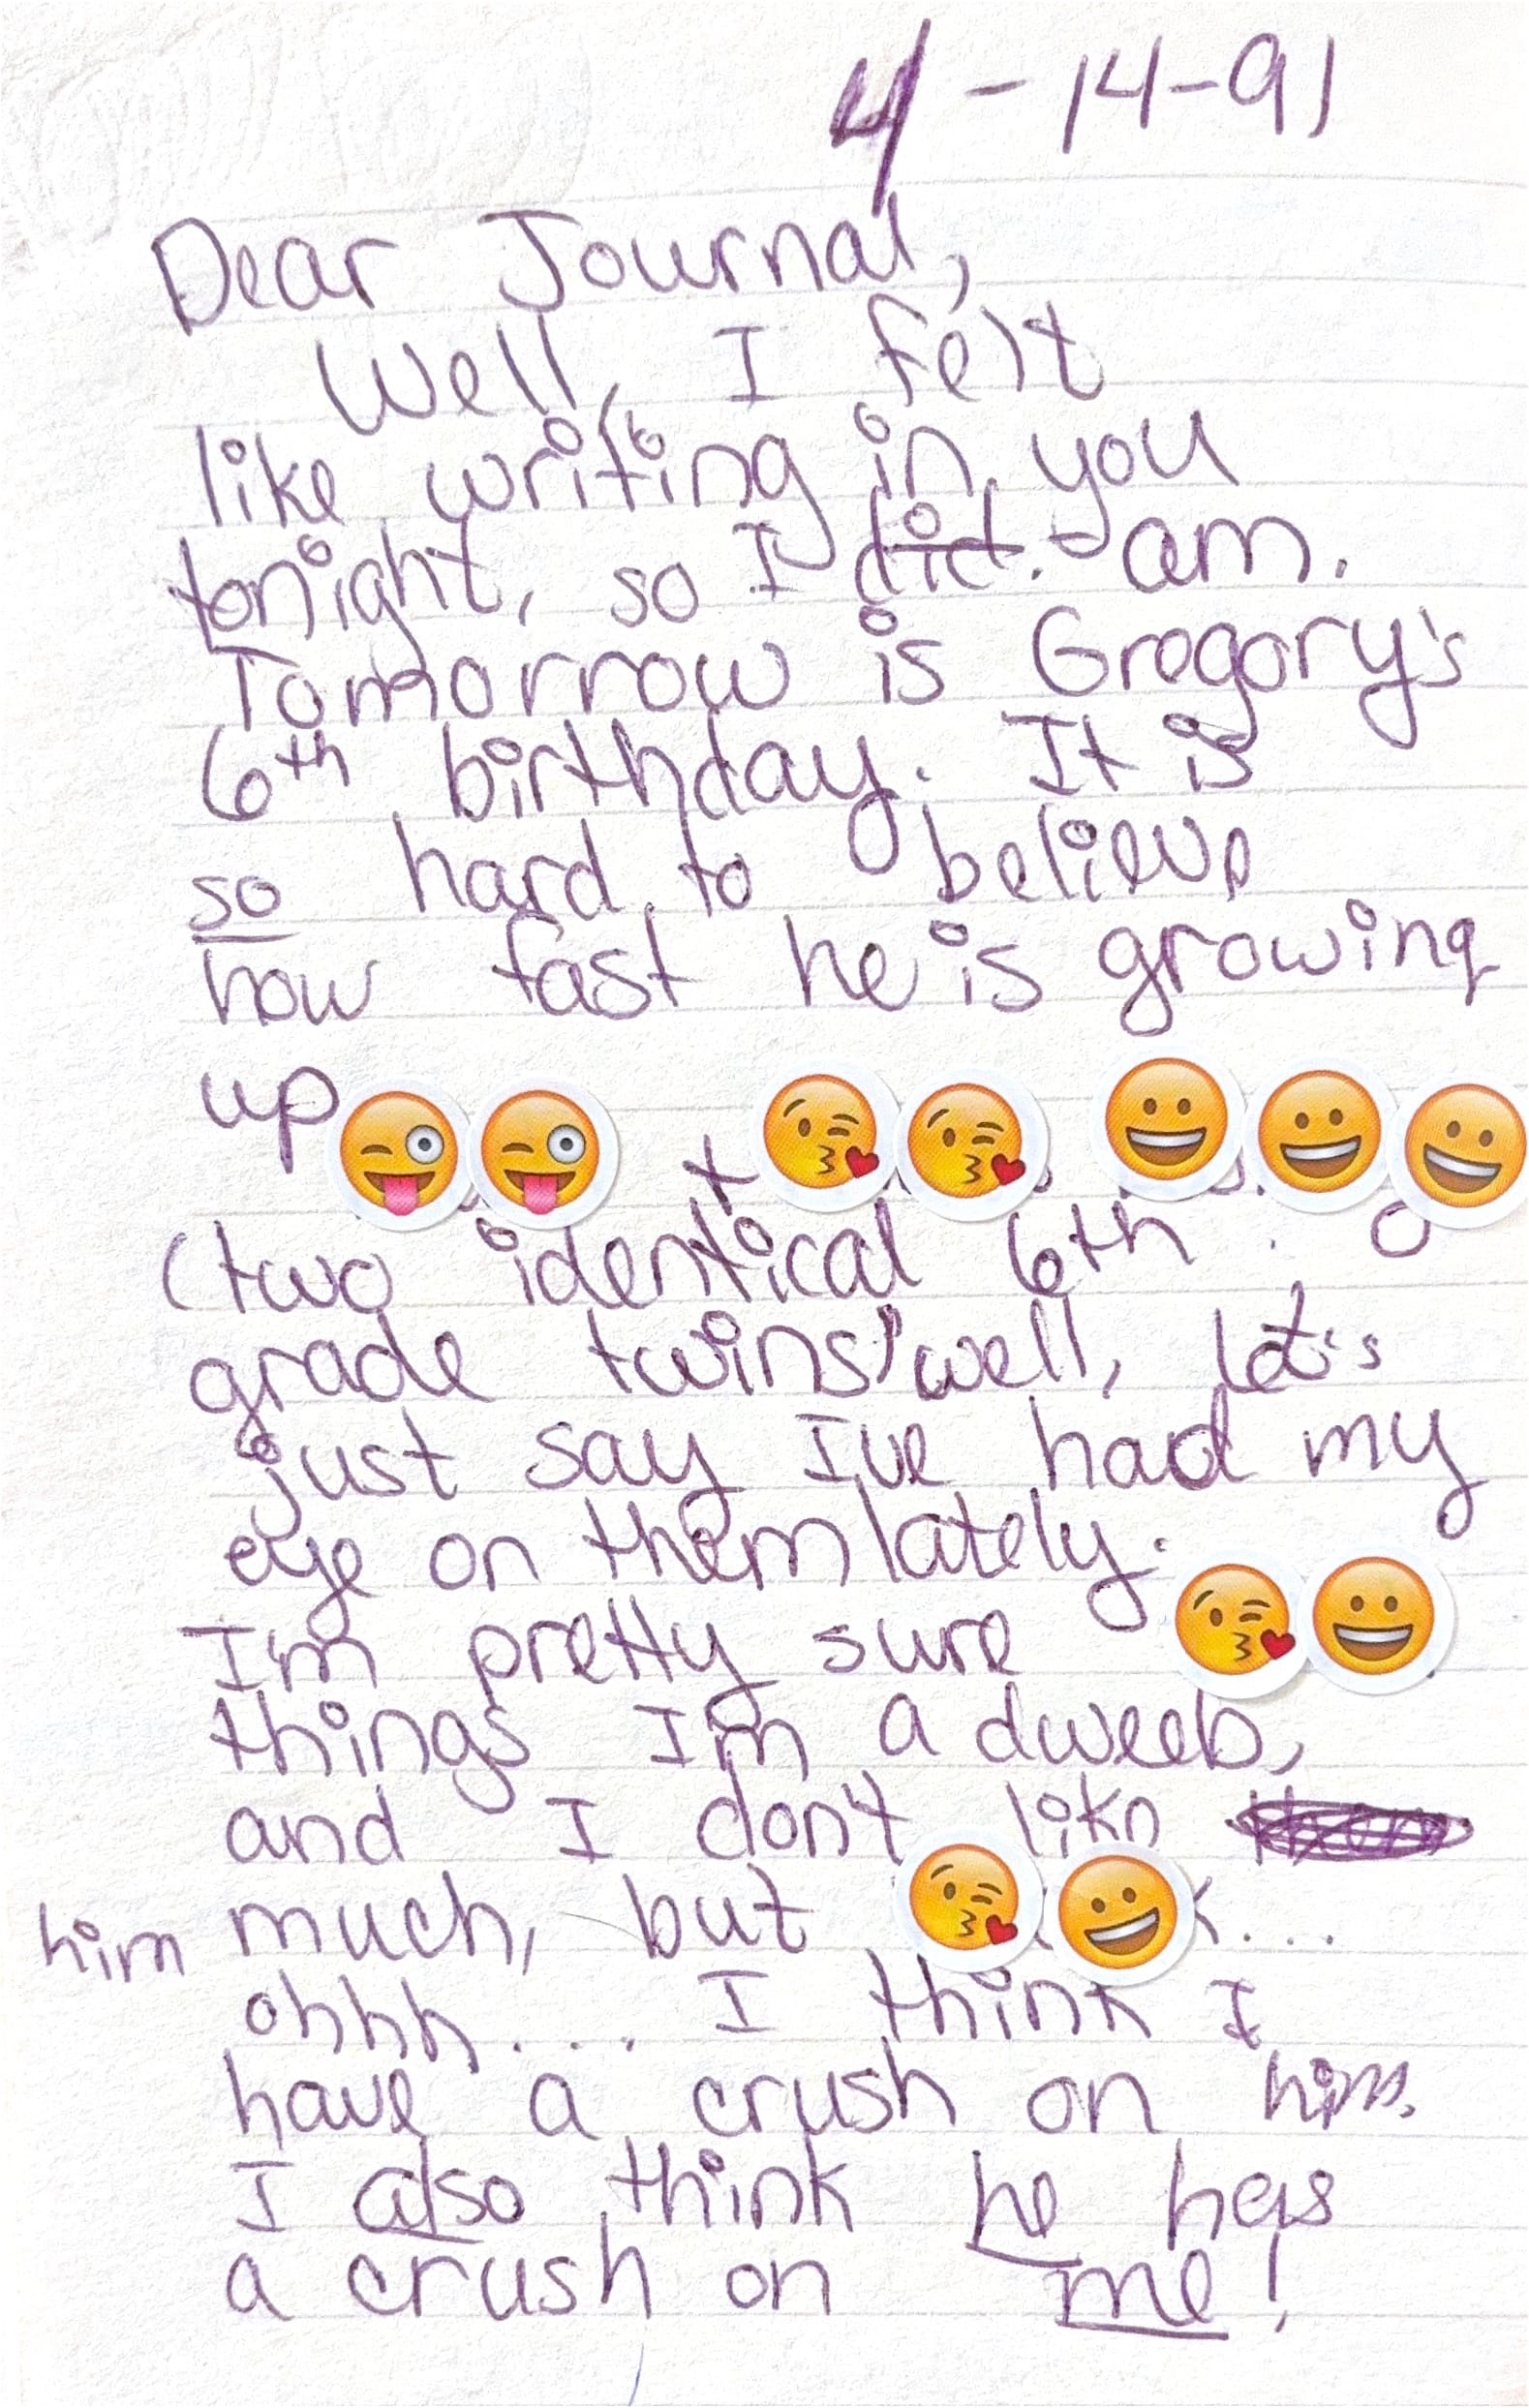 4-14-91
Dear Journal,
Well, I felt
like writing in you
tonight, so I did. am.
Tomorrow is Gregory's
6th birthday. It is
so hard to believe
how fast he is growing
up
(two identical 6th
grade twins) well, let's
just say I've had my
eye on them lately.
I'm pretty sure
things I'm a dweeb,
and I don't like
him much, but
ohhh.... I think I
have a crush on him.
I also think he has
a crush on me!